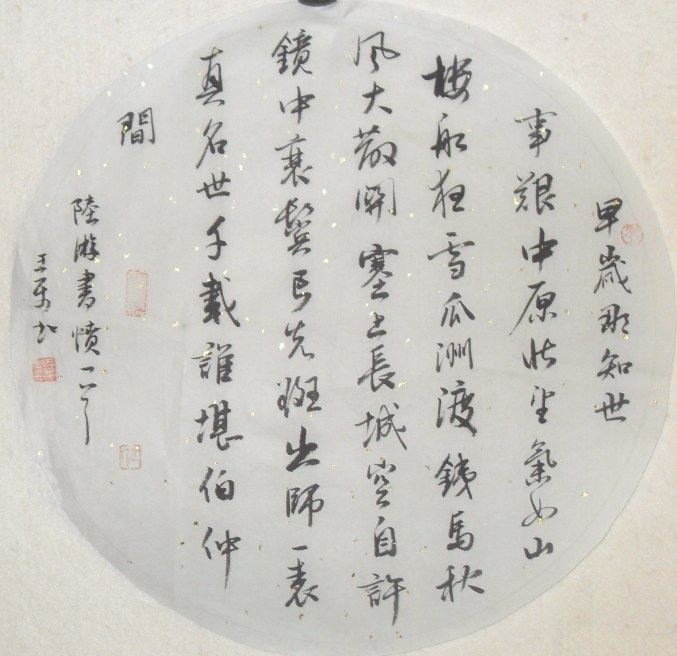 早歲那知世
事艱中原北望氣如山
楼船夜雪瓜洲渡鐵馬秋
風大散關塞上長城空自許
鏡中衰鬢已先斑出師一表
真名世千載誰堪伯仲
間
陸游書憤一首
王